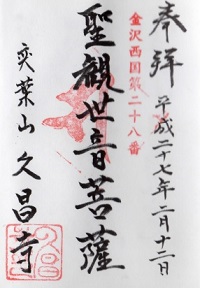 奉拝 平成二十七年二月十二日
金沢西国第二十八番
聖観世音菩薩
奕葉山 久昌寺